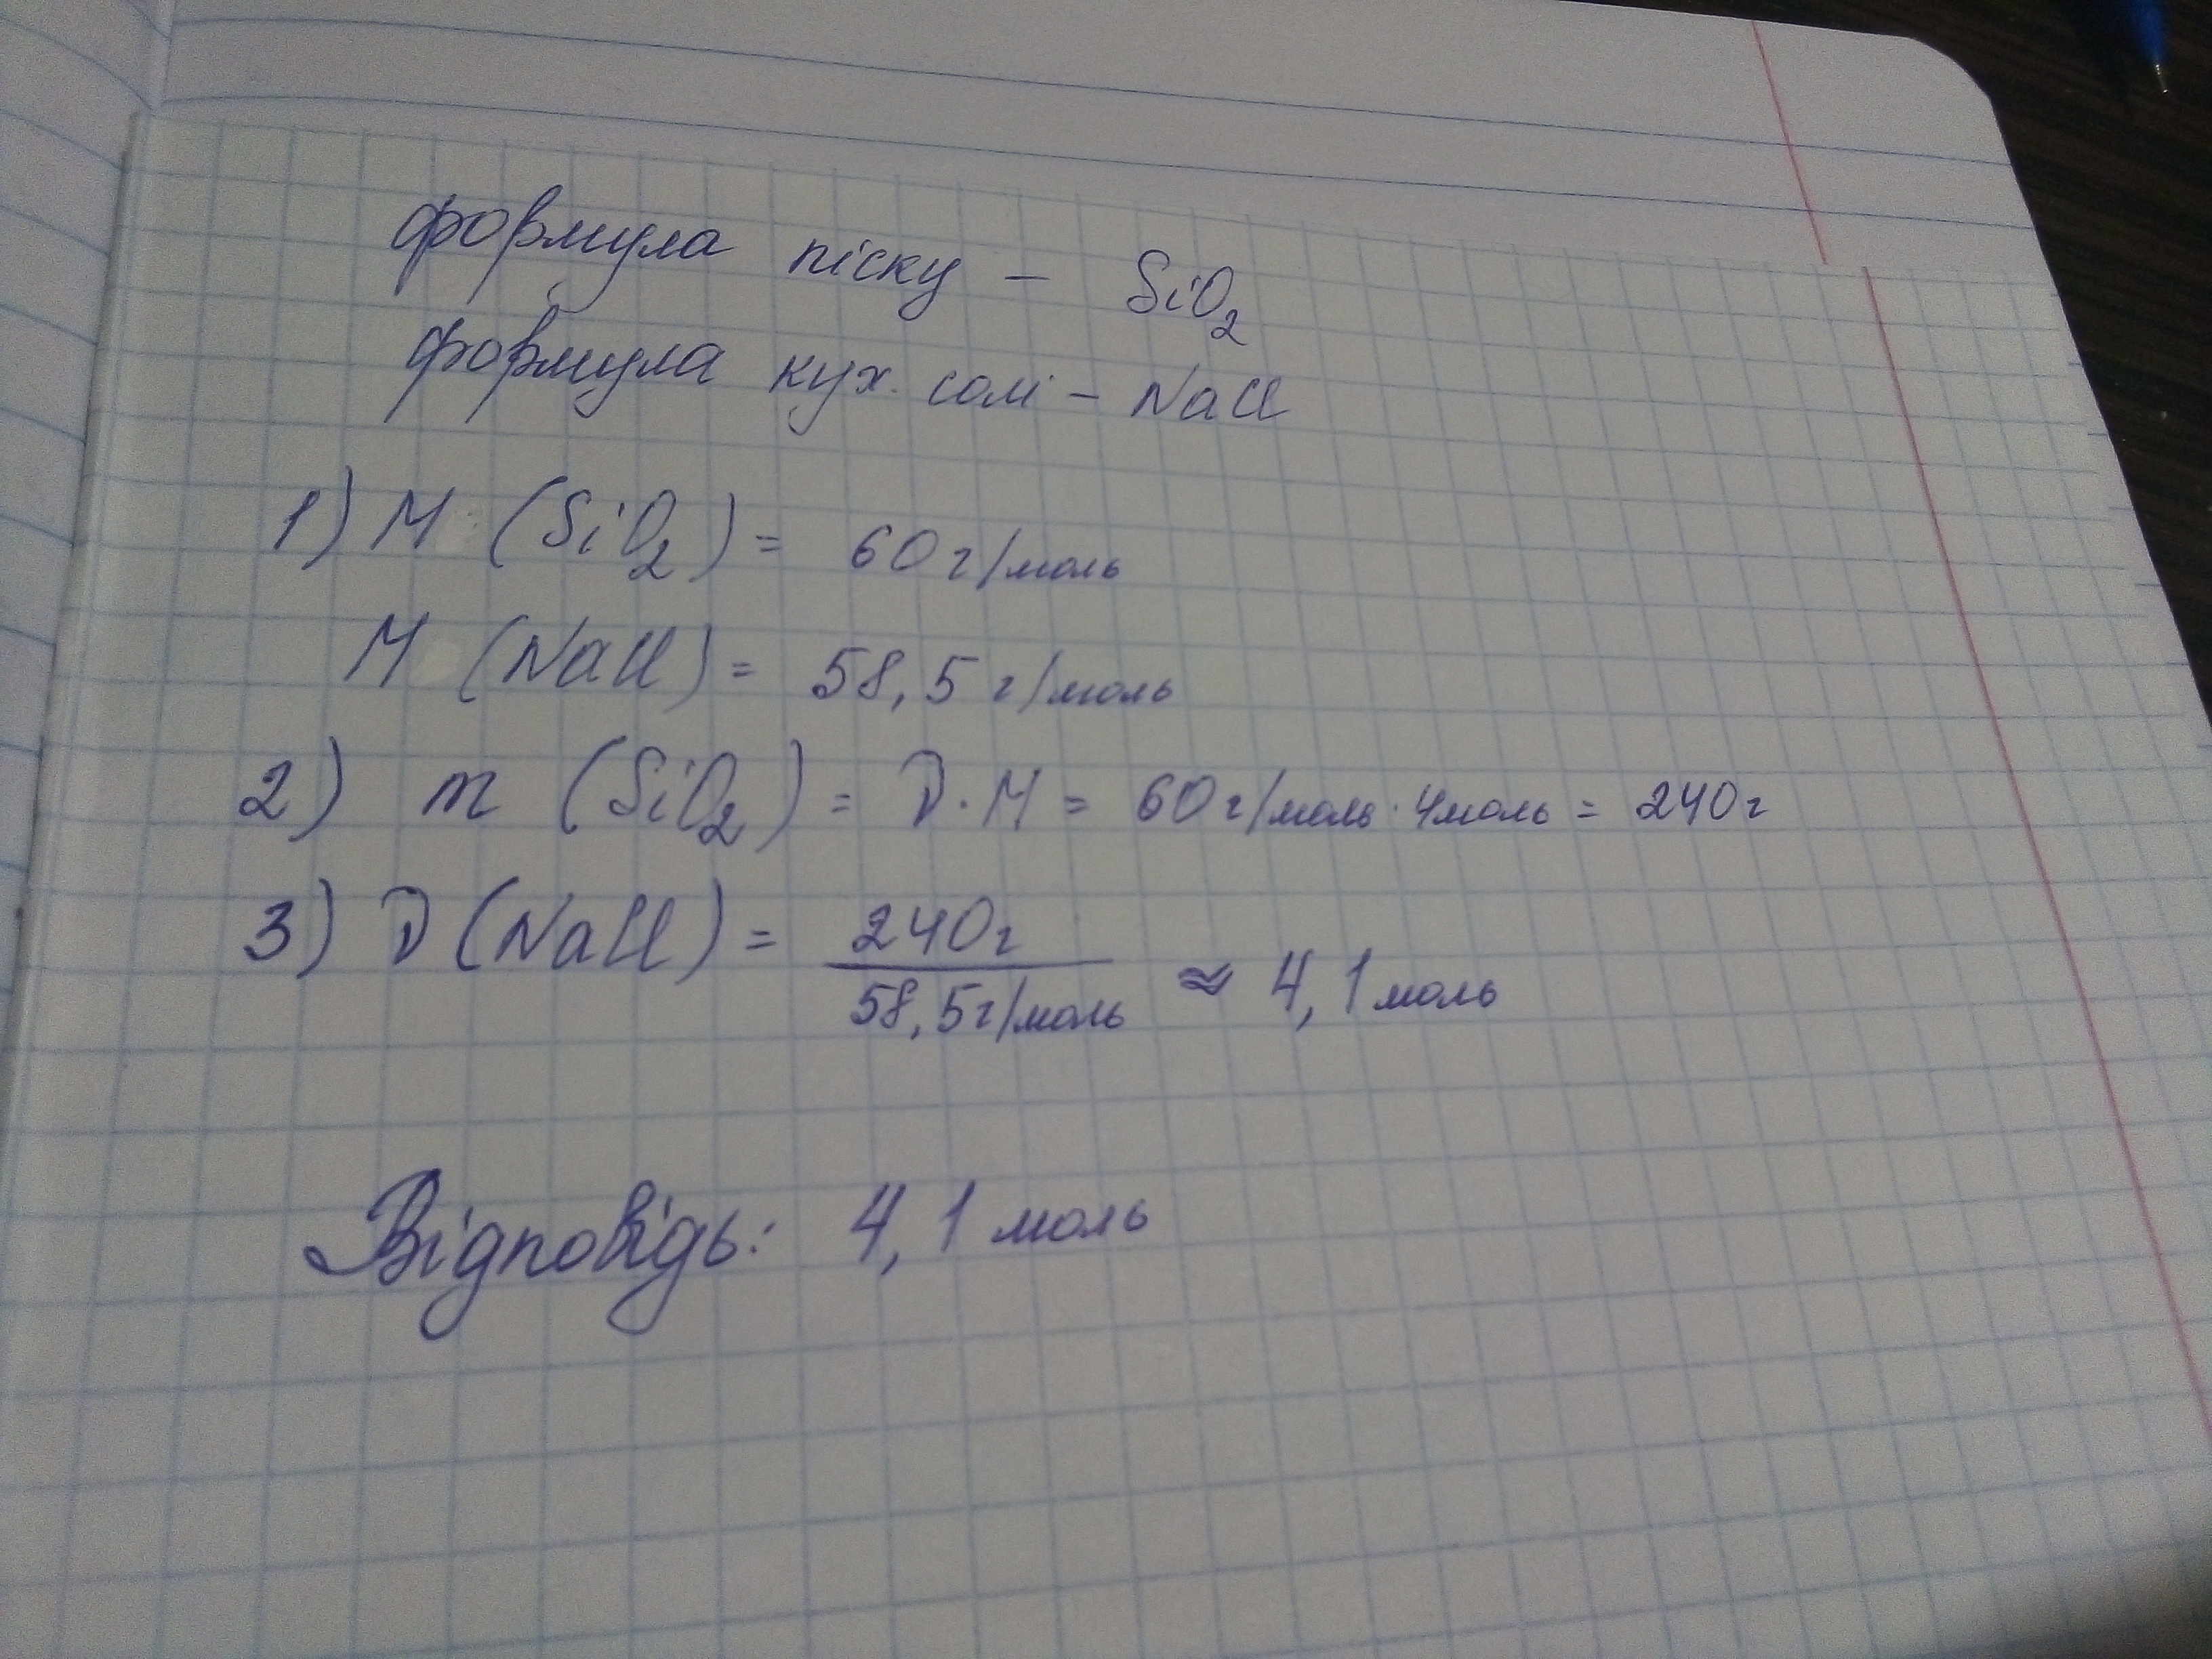 формула піску – SiO₂
формула кух. солі – NaCl
1) M (SiO₂) = 60 г/моль
M (NaCl) = 58,5 г/моль
2) m (SiO₂) = ν · M = 60 г/моль · 4 моль = 240 г
3) ν (NaCl) = 240 г / 58,5 г/моль ≈ 4,1 моль
Відповідь: 4,1 моль